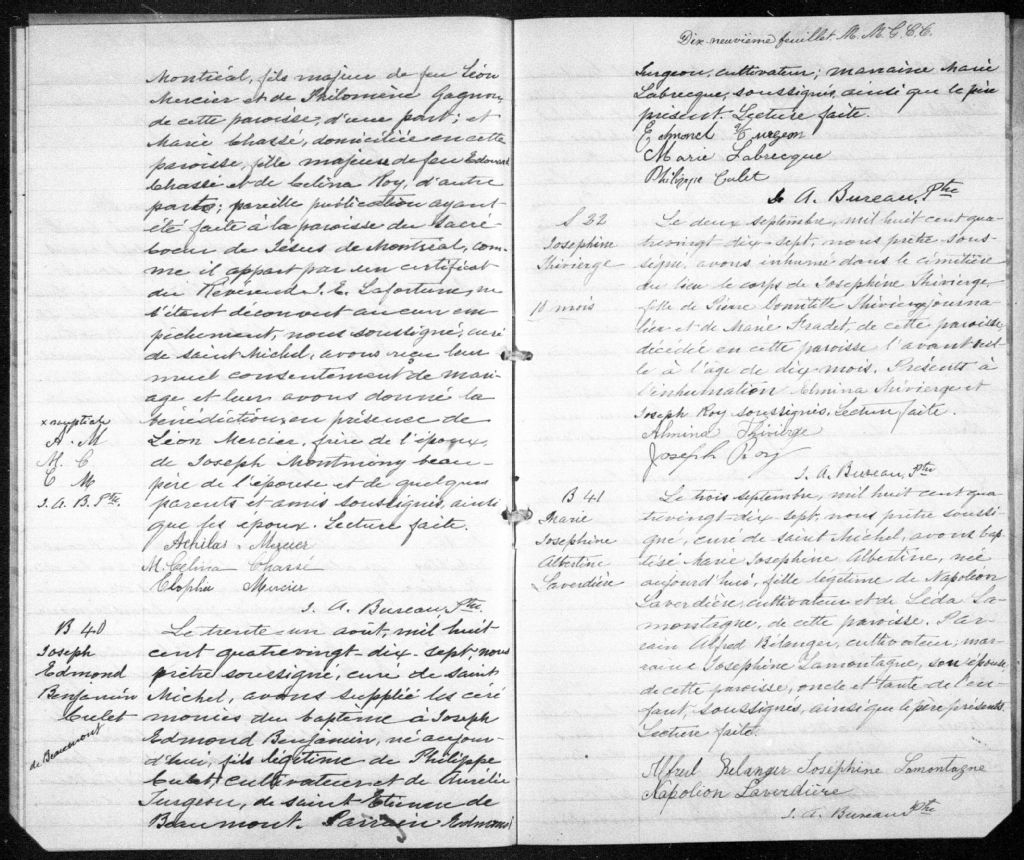 Montréal, fils majeur de feu Léon
Mercier et de Philomène Gagnon,
de cette paroisse, d'une part; et
Marie Chassé, domiciliée en cette
paroisse, fille majeure de feu Edouard
Chassé et de Celina Roy, d'autre
part; pareille publication ayant
été faite à la paroisse du Sacré
Coeur de Jésus de Montréal, com-
me il appart par un certificat
du Révérend J. E. Lafortune, ne
s'étant découvert aucun em
pêchement, nous soussigné, curé
de Saint Michel, avons reçu leur
muet consentement de mari-
age et leur avons donné la
x nuptiale
A. M
M. C
E M
J. A. B. Ptre.
bénédiction x en présence de
Léon Mercier, frère de l'époux,
de Joseph Montminy beau-
père de l'épouse et de quelques
parents et amis soussignés, ainsi
que les époux. Lecture faite.
Achilas Mercier
M. Celina Chasse
Elophie Mercier
J. A. Bureau, Ptre.
B 40
Joseph
Edmond
Benjamin
Culet
de Beaumont
Le trente-un août, mil huit
cent quatrevingt-dix-sept, nous
prêtre soussigné, curé de Saint
Michel, avons supplié les céré
monies du baptême à Joseph
Edmond Benjamin, né aujour-
d'hui, fils légitime de Philippe
Culet, cultivateur et de Aurélie
Turgeon, de Saint-Etienne de
Beaumont. Parrain Edmond
Dix-neuvième feuillet M. M. G. C. C.
Turgeon, cultivateur; marraine Marie
Labrecque, soussignés, ainsi que le père
présent. Lecture faite.
Edmond Turgeon
Marie Labrecque
Philippe Culet
J. A. Bureau, Ptre
S 32
Josephine
Thivierge
10 mois
Le deux septembre, mil huit cent qua-
trevingt-dix-sept, nous prêtre sous-
signé, avons inhumé dans le cimetière
du lieu le corps de Josephine Thivierge,
fille de Pierre Domitille Thivierge, journa-
lier et de Marie Fradet, de cette paroisse,
décédée en cette paroisse l'avant veil-
le à l'age de dix mois. Présents à
l'inhumation Elmina Thivierge et
Joseph Roy soussignés. Lecture faite.
Almina Thivierge
Joseph Roy
J. A. Bureau, Ptre
B 41
Marie
Josephine
Albertine
Laverdière
Le trois septembre, mil huit cent qua
trevingt-dix-sept, nous prêtre soussi
gné, curé de Saint Michel, avons bap-
tisé Marie Josephine Albertine, née
aujourd'hui, fille légitime de Napoléon
Laverdière, cultivateur et de Léda La-
montagne, de cette paroisse. Par-
rain Alfred Bélanger, cultivateur, mar-
raine Josephine Lamontagne, son épouse
de cette paroisse, oncle et tante de l'en-
fant, soussignés, ainsi que le père présents.
Lecture faite.
Alfred Belanger Joséphine Lamontagne
Napoléon Laverdière
J. A. Bureau Ptre